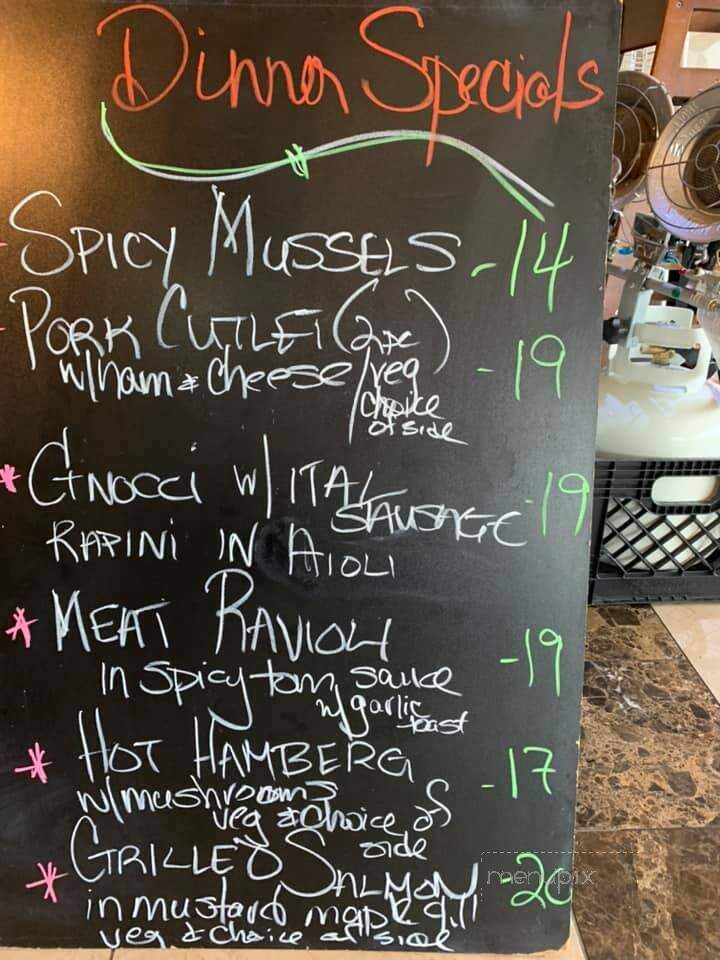 Dinner Specials
SPICY MUSSELS -14
PORK CUTLET (2pc) -19
w/ham & cheese/veg
choice
of side
* GNOCCI W/ ITAL -19
SAUSAGE
RAPINI IN AIOLI
* MEAT RAVIOLI -19
in spicy tom sauce
w/ garlic
toast
* HOT HAMBERG -17
w/mushrooms
veg & choice of
side
* GRILLED SALMON -20
in mustard maple dill
veg & choice of side
menupix